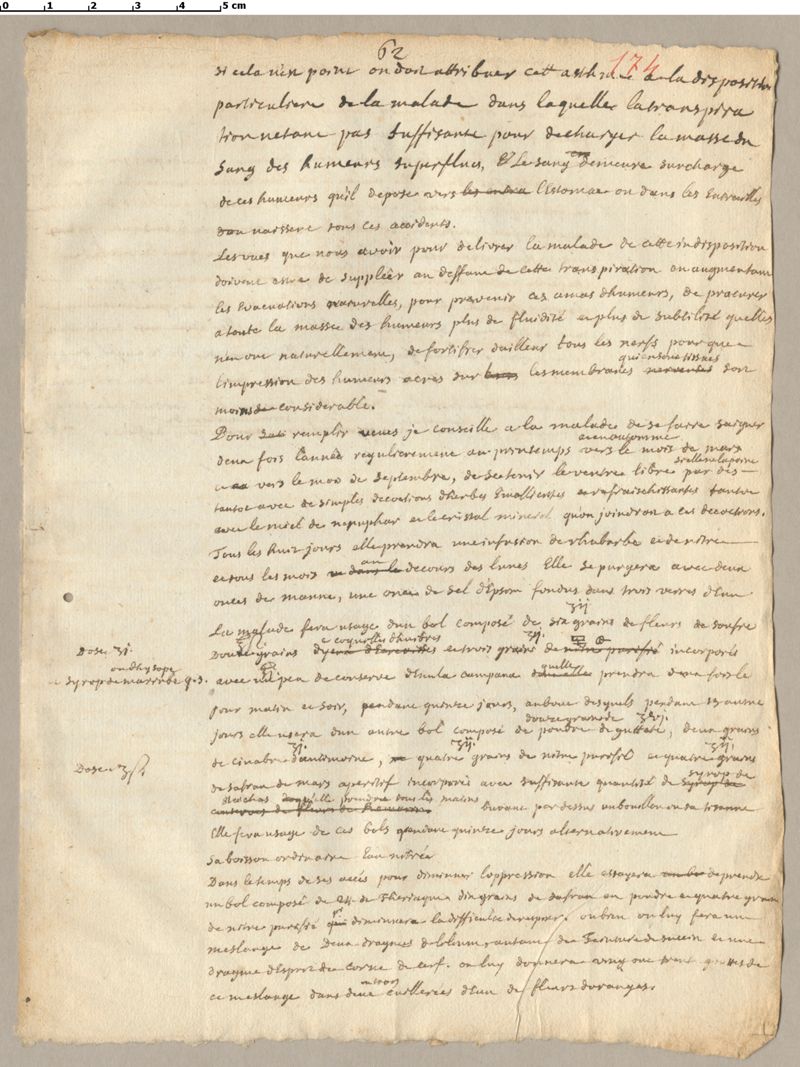 0 1 2 3 4 5 cm
62
174
si cela n'est point on doit attribuer cett asthme a la disposition
particuliere de la malade dans laquelle la transpira
tion netant pas suffisante pour decharger la masse du
sang des humeurs superflues, & Le sang en demeure surchargé
de ces humeurs qu'il depose vers l'Estomac ou dans les Entrailles
dou naissent tous ces accidents.
Les vues que nous avoir pour delivrer la malade de cette indisposition
doivent estre de suppleer au deffaut de cette transpiration en augmentant
les Evacuations naturelles, pour prevenir ces amas d'humeurs, de procurer
a toute la masse des humeurs plus de fluidité et plus de subtilité quelles
nen ont naturellement, de fortifier dailleur tous les nerfs pour que
qui en sont tissues
l'impression des humeurs acres sur les membranes soit
moins considerable.
Pour remplir je conseille a la malade de se faire saigner
et en automne
deux fois l'année regulierement au printemps vers le mois de mars
si elle ne la poine
vers le mois de septembre, de se tenir le ventre libre par des
tantot avec de simples decoctions d'herbes Emollientes et rafraischissantes tantot
avec le miel de nenuphar et le cristal mineral quon joindron a ces decoctions.
Tous les huit jours elle prendra une infusion de rhubarbe et de nitre
au
et tous les mois decours des lunes Elle se purgera avec deux
onces de manne, une once de sel d'Epsom fondus dans trois verres d'Eau
La malade fera usage d'un bol composé de six grains de fleurs de soufre
e coquilles d'huitres
Douze grains et trois grains de incorporés
Dose ʒi.
ou d'hysope
syrop de marrube q. s.
avec un peu de conserve d'Enula campana quelle prendra deux fois le
jour matin et soir, pendant quinze jours, au bout desquels pendant 15 autre
douze grains de
jours elle usera d'un autre bol composé de poudre de guttete, deux grains
de cinabre d'antimoine, quatre grains de nitre purifié et quatre grains
Dose
de safran de mars aperitif incorporés avec suffisante quantité de syrop de
stechas quelle prendra tous les matins
buvant par dessus un bouillon ou sa tisanne
Elle fera usage de ces bols pendant quinze jours alternativement
sa boisson ordinaire Eau nitrée
Dans le temps de ses accés pour diminuer l'oppression elle essayera de prendre
un bol composé de 24 de Theriaque dix grains de safran en poudre et quatre grains
de nitre purifié diminuera la difficulté de respirer. ou bien on luy fera un
meslange de Deux dragmes de lilium, autant de Teinture de succin et une
dragme d'Esprit de corne de cerf. on luy donnera vingt ou trente gouttes de
ou trois
ce meslange dans deux cuillerées d'Eau de fleurs d'oranges.